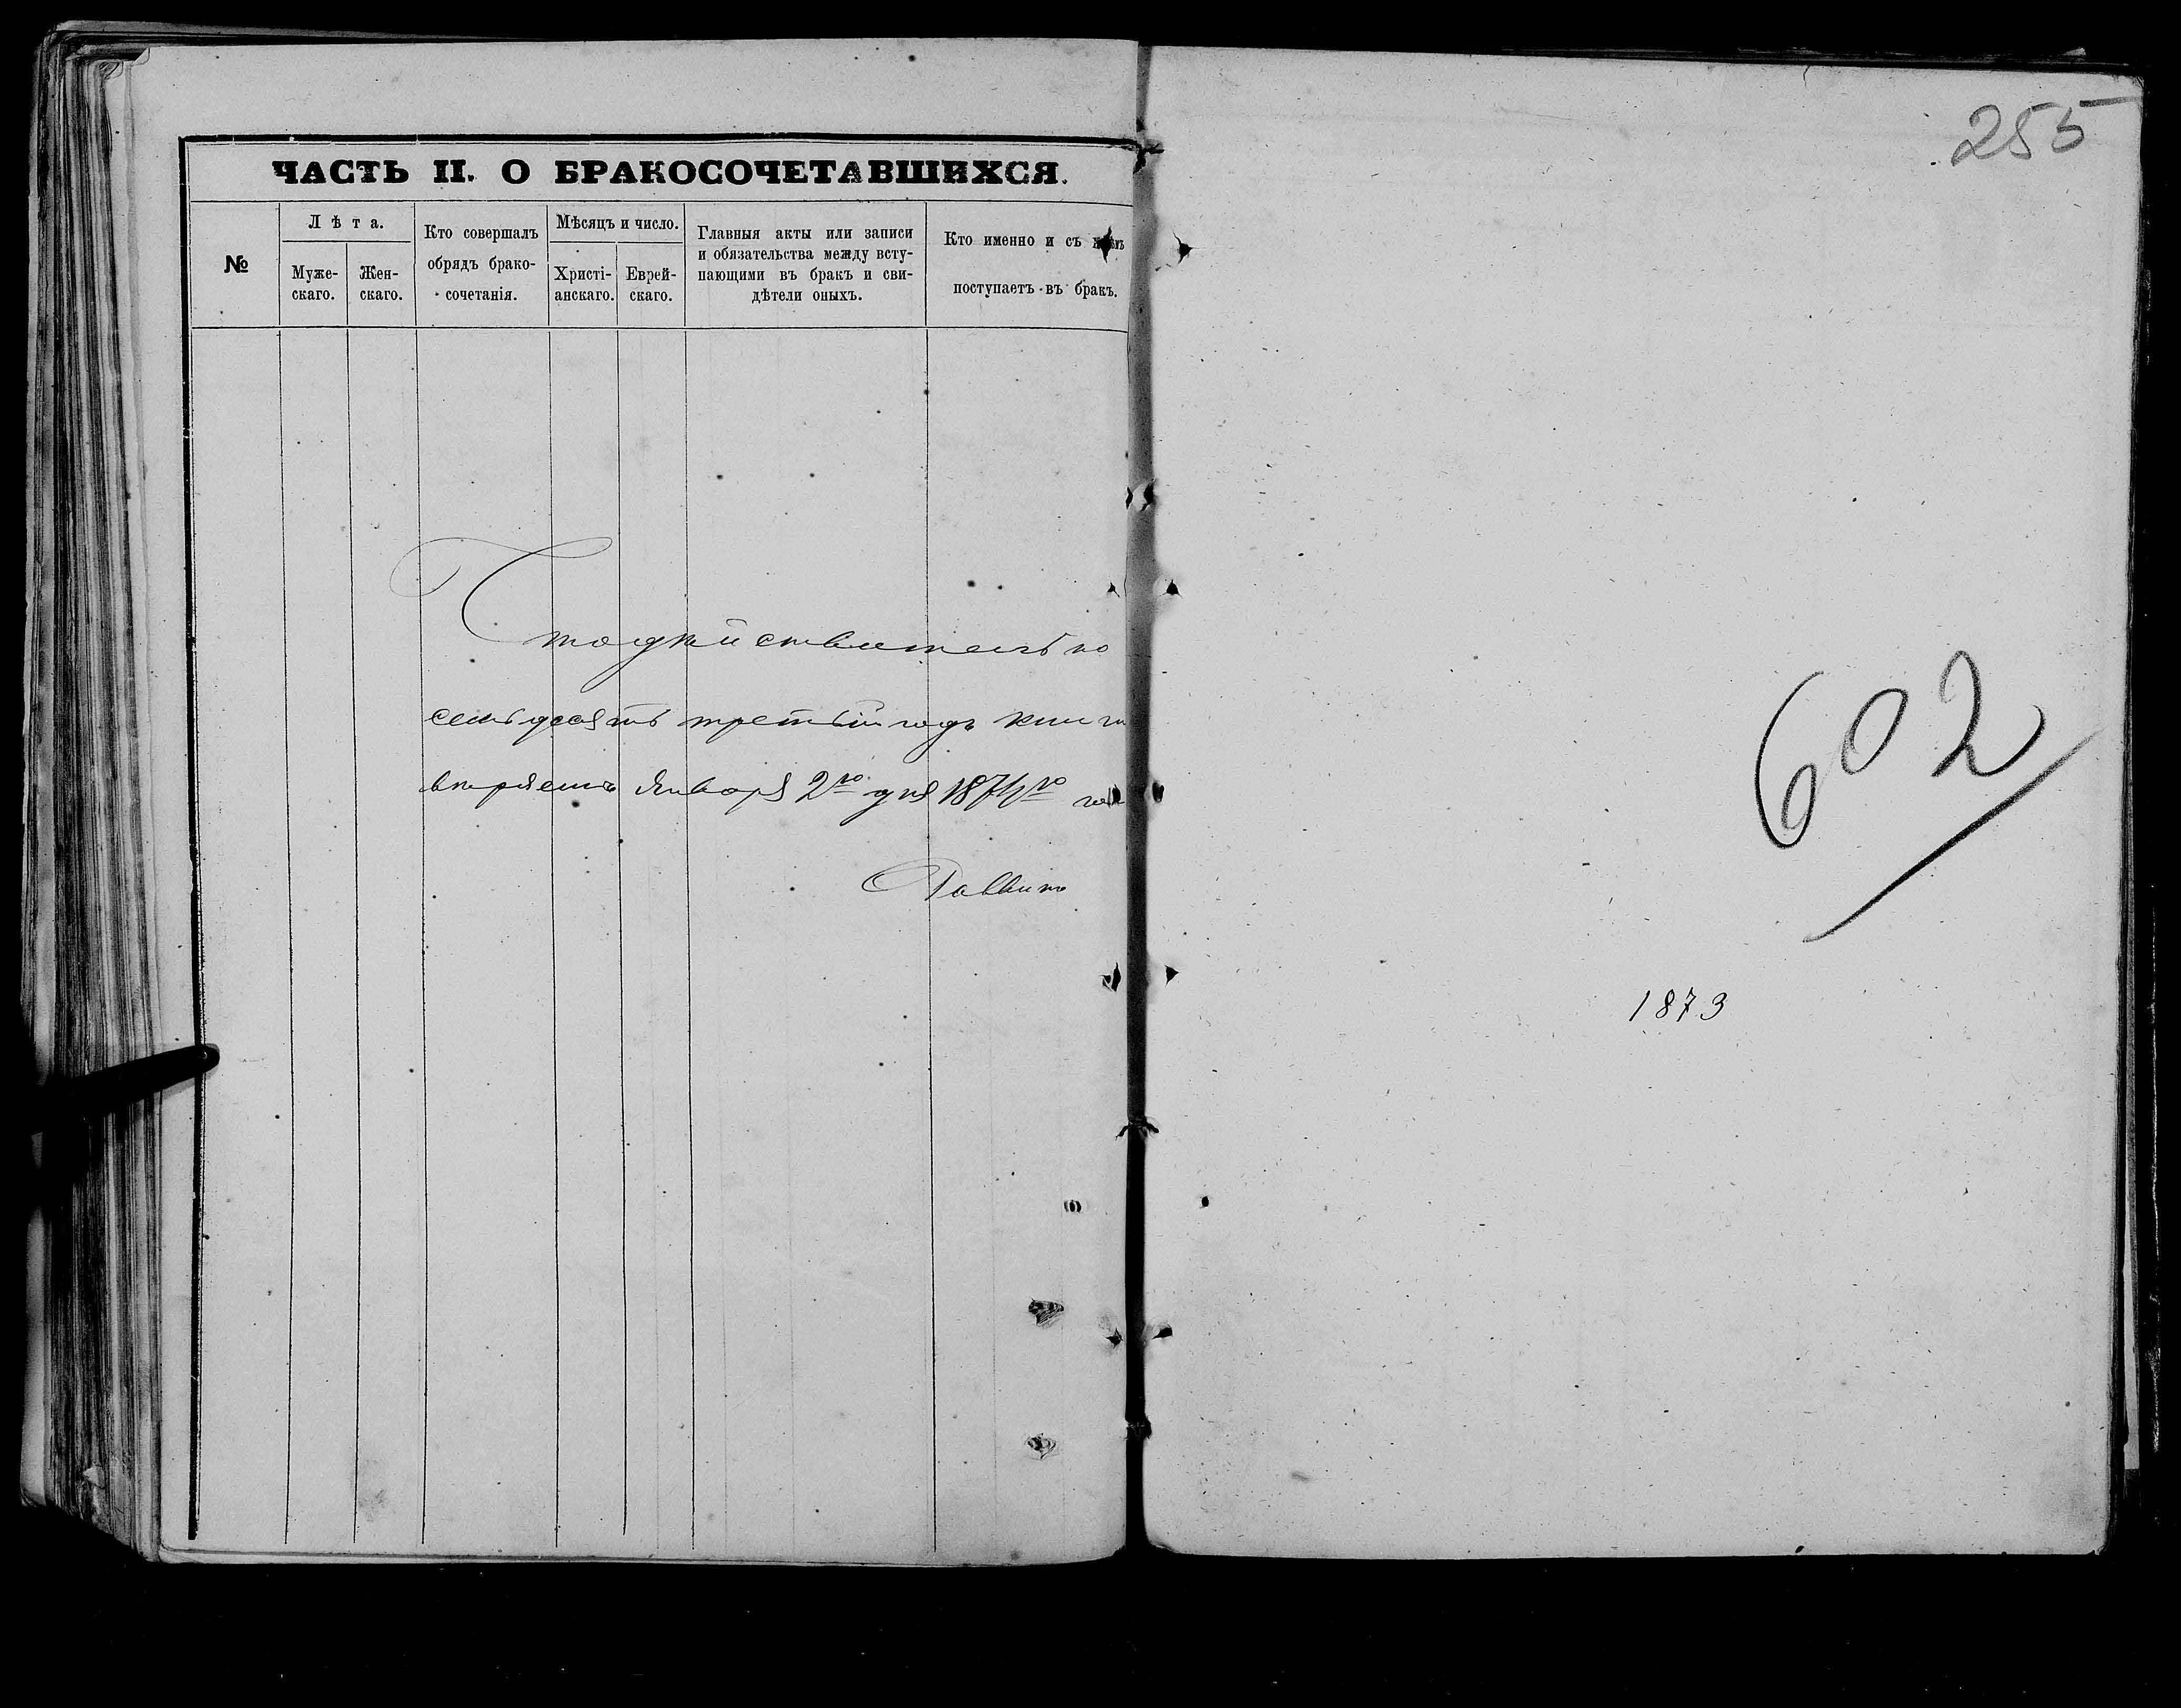 ЧАСТЬ II. О БРАКОСОЧЕТАВШИХСЯ.
№
Лѣта.
Муже-
скаго.
Жен-
скаго.
Кто совершалъ
обрядъ брако-
сочетанія.
Мѣсяцъ и число.
Христі-
анскаго.
Еврей-
скаго.
Главныя акты или записи
и обязательства между всту-
пающими въ бракъ и сви-
дѣтели оныхъ.
Кто именно и съ кѣмъ
поступаетъ въ бракъ.
Что дѣйствительно
семьдесятъ третьій годъ книги
Января 2го дня 1874го
Раввинъ
255
602
1873